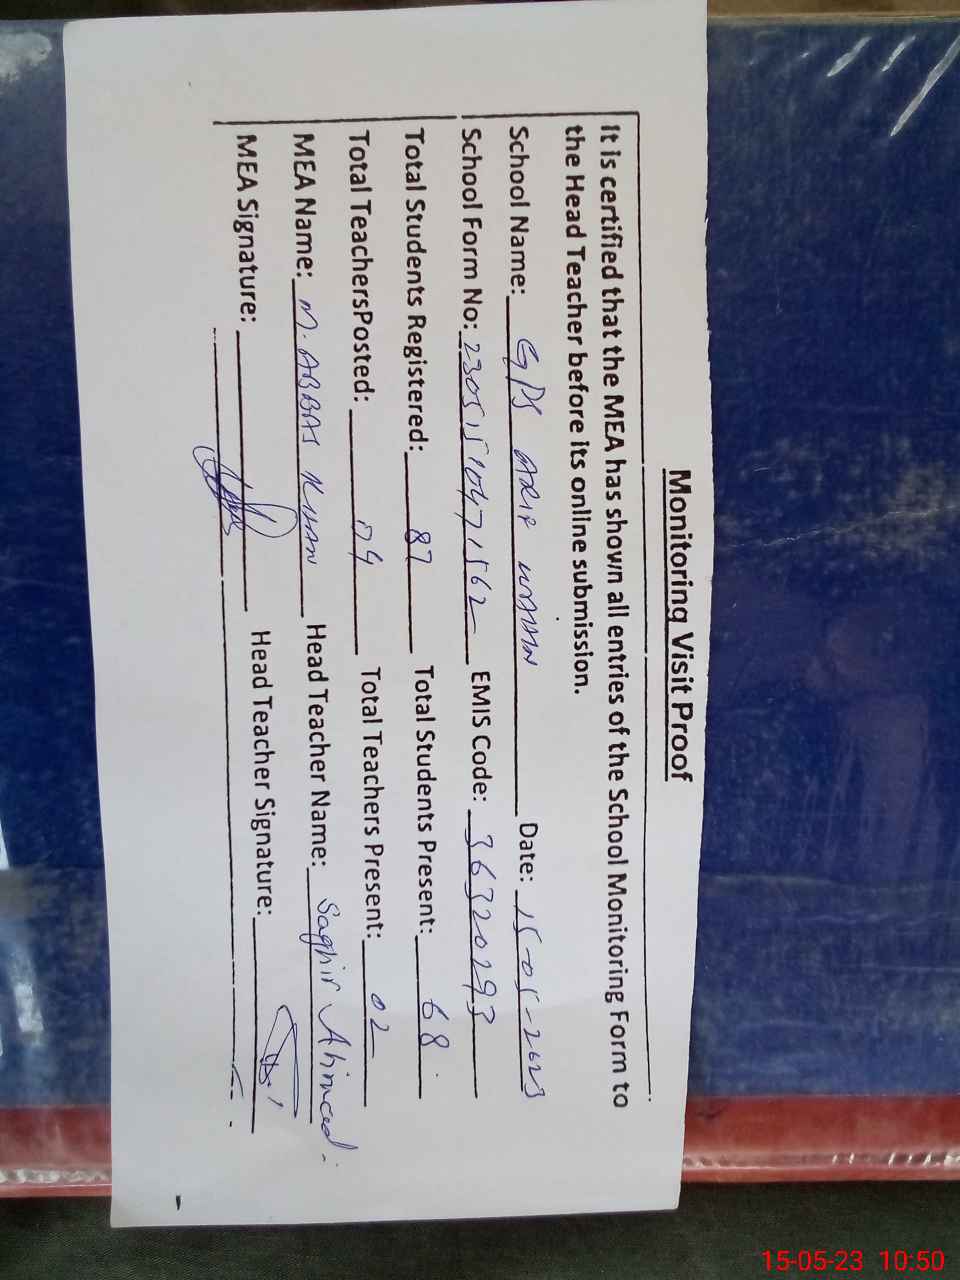 Monitoring Visit Proof
It is certified that the MEA has shown all entries of the School Monitoring Form to
the Head Teacher before its online submission.
School Name: GPS ARIF Date: 15-05-2023
School Form No: EMIS Code: 36320293
Total Students Registered: 87 Total Students Present: 68
Total TeachersPosted: 04 Total Teachers Present: 02
MEA Name: M. ABBAS KHAN Head Teacher Name: Saghir Ahmed
MEA Signature: Head Teacher Signature:
15-05-23 10:50